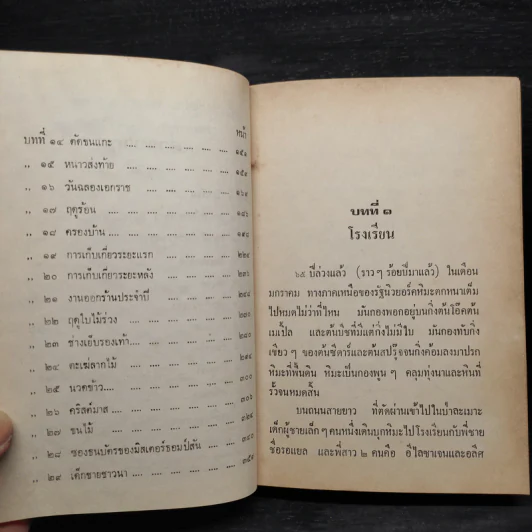 หน้า
บทที่ ๑๔ ตัดขนแกะ .... .... .... .... .... .... ๑๕๑
,, ๑๕ หนาวส่งท้าย .... .... .... .... .... ๑๕๙
,, ๑๖ วันฉลองเอกราช .... .... .... .... ๑๖๙
,, ๑๗ ฤดูร้อน .... .... .... .... .... .... ๑๘๖
,, ๑๘ ครองบ้าน .... .... .... .... .... ๑๙๘
,, ๑๙ การเก็บเกี่ยวระยะแรก .... .... .... ๒๒๔
,, ๒๐ การเก็บเกี่ยวระยะหลัง .... .... ....
,, ๒๑ งานออกร้านประจำปี .... .... ....
,, ๒๒ ฤดูใบไม้ร่วง .... .... .... ....
,, ๒๓ ช่างเย็บรองเท้า .... .... .... ....
,, ๒๔ คะเฆ่ลากไม้ .... .... .... ....
,, ๒๕ นวดข้าว .... .... .... .... ....
,, ๒๖ คริสต์มาส .... .... .... .... ๓๐๖
,, ๒๗ ขนไม้ .... .... .... .... ....
,, ๒๘ ซองธนบัตรของมิสเตอร์ธอมป์สัน ....
,, ๒๙ เด็กชายชาวนา .... .... .... .... ๓๕๐
บทที่ ๑
โรงเรียน
๖๕ ปีล่วงแล้ว (ราว ๆ ร้อยปีมาแล้ว) ในเดือน
มกราคม ทางภาคเหนือของรัฐนิวยอร์คหิมะตกหนาเต็ม
ไปหมดไม่ว่าที่ไหน มันกองพอกอยู่บนกิ่งต้นโอ๊คต้น
เมเปิ้ล และต้นบีชที่มีแต่กิ่งไม่มีใบ มันกองทับกิ่ง
เขียว ๆ ของต้นซีดาร์และต้นสปรู๊ซจนกิ่งค้อมลงมาปรก
หิมะที่พื้นดิน หิมะเป็นกองพูน ๆ คลุมทุ่งนาและหินที่
รั้วจนหมดสิ้น
บนถนนสายยาว ที่ตัดผ่านเข้าไปในป่าละเมาะ
เด็กผู้ชายเล็ก ๆ คนหนึ่งเดินบุกหิมะไปโรงเรียนกับพี่ชาย
ชื่อรอแยล และพี่สาว ๒ คนคือ อีไลซาเจนและอลิศ